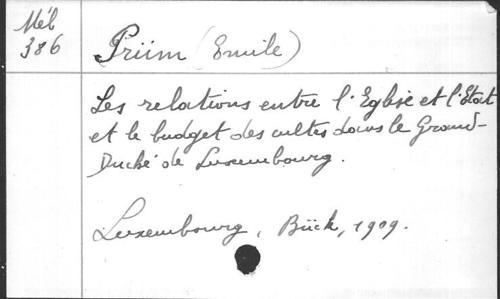 Mél
386
Prüm (Emile)
Les relations entre l'Eglise et l'Etat
et le budget des cultes dans le Grand-
Duché de Luxembourg.
Luxembourg, Bück, 1909.